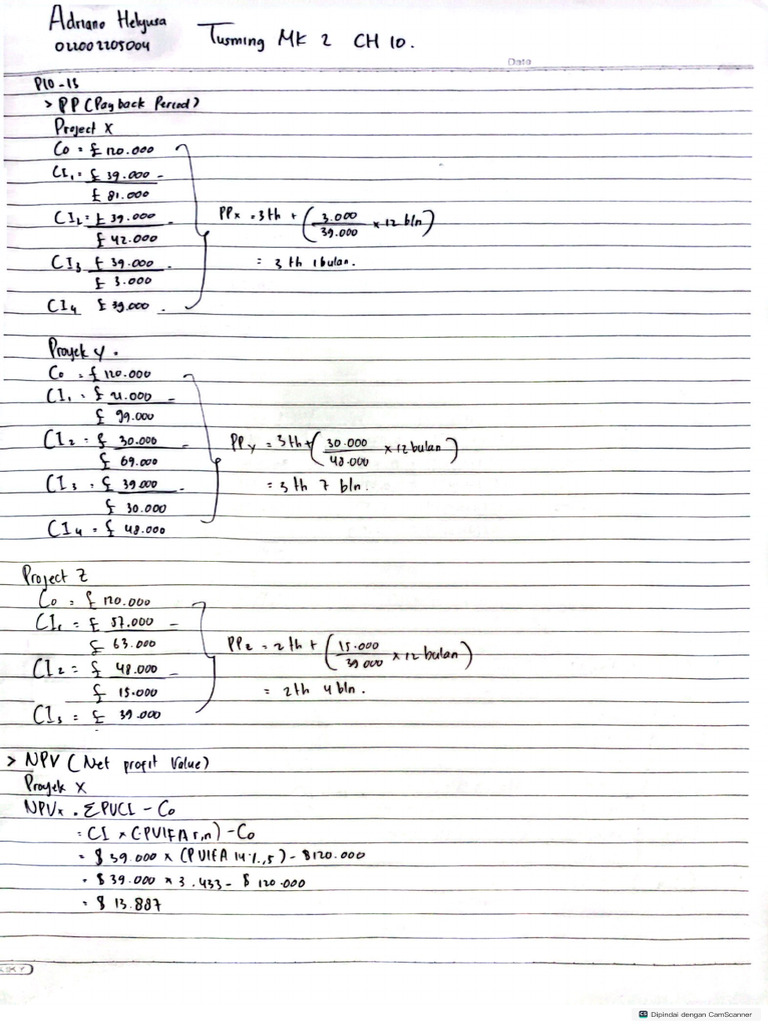 Adriano Helyusa
022002205004
Tusming MK 2 CH 10.
Date
P10-15
> PP (Payback Period)
Project X
Co = £ 120.000
CI₁ = £ 39.000 -
£ 81.000
CI₂ = £ 39.000 -
£ 42.000
CI₃ £ 39.000 -
£ 3.000
CI₄ £ 39.000 .
PPx = 3 th + (3.000 / 39.000 × 12 bln)
= 3 th 1 bulan.
Proyek y .
Co = £ 120.000
CI₁ = £ 21.000 -
£ 99.000
CI₂ = £ 30.000 -
£ 69.000
CI₃ = £ 39.000 -
£ 30.000
CI₄ = £ 48.000
PPy = 3 th + (30.000 / 48.000 × 12 bulan)
= 3 th 7 bln.
Project Z
Co = £ 120.000
CI₁ = £ 57.000 -
£ 63.000
CI₂ = £ 48.000 -
£ 15.000
CI₃ = £ 39.000
PPz = 2 th + (15.000 / 39.000 × 12 bulan)
= 2 th 4 bln.
> NPV (Net profit Value)
Proyek X
NPVx = ΣPVCI - Co
= CI × (PVIFA r,n) - Co
= $ 39.000 × (PVIFA 14%,5) - $120.000
= $ 39.000 × 3.433 - $ 120.000
= $ 13.887
Dipindai dengan CamScanner